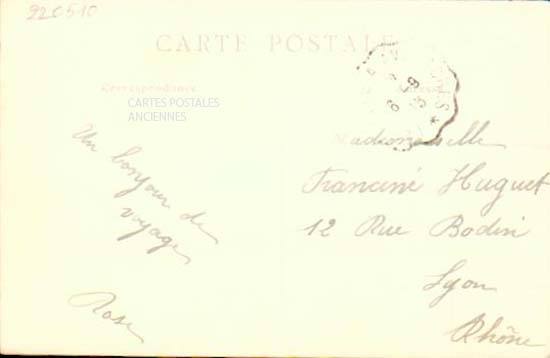 220510
CARTE POSTALE
Correspondance
Adresse
CARTES POSTALES
ANCIENNES
Un bonjour de
voyage
Rose
Mademoiselle
Francine Huguet
12 Rue Bodin
Lyon
Rhône